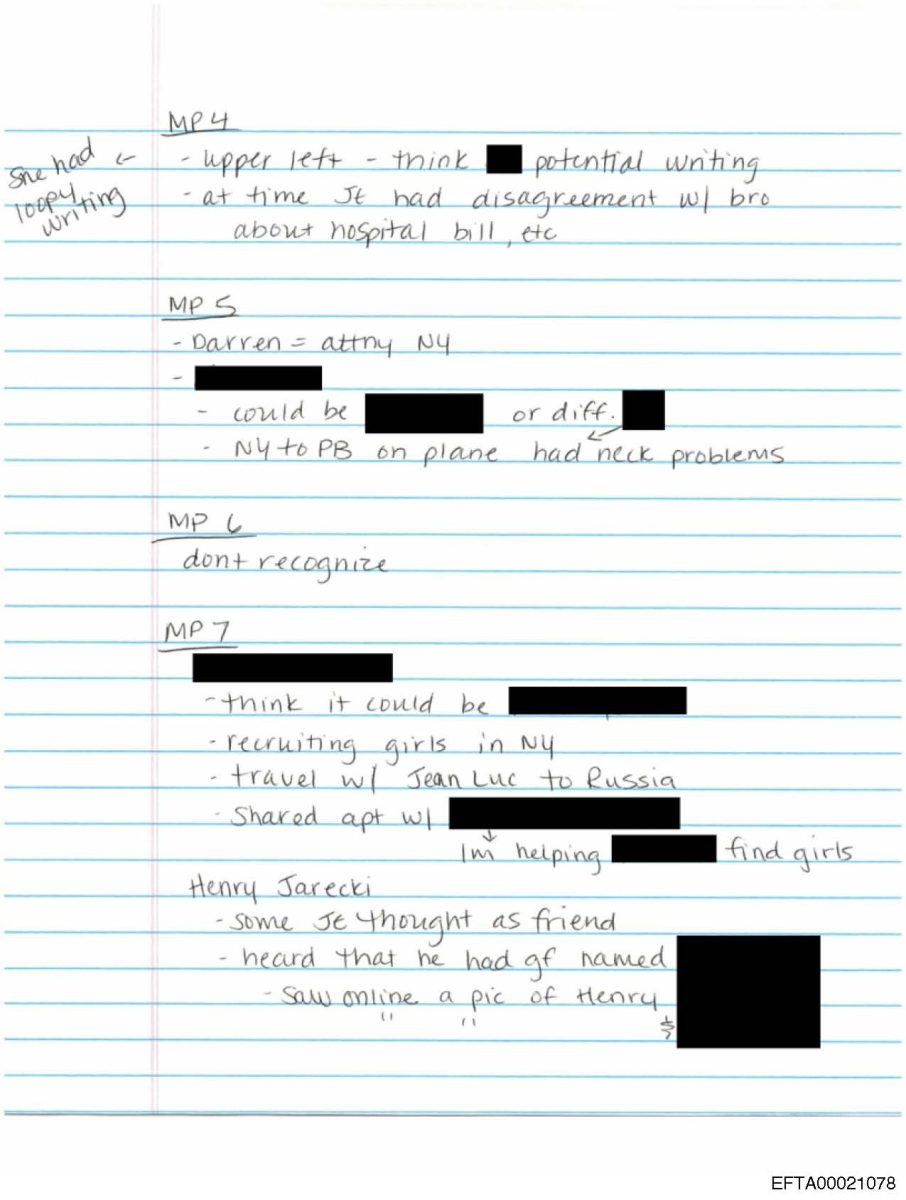 MP 4
She had ← loopy writing
- upper left - think potential writing
- at time JE had disagreement w/ bro
about hospital bill, etc
MP 5
- Darren = attny NY
-
- could be or diff.
- NY to PB on plane had neck problems
MP 6
dont recognize
MP 7
- think it could be
- recruiting girls in NY
- travel w/ Jean Luc to Russia
- Shared apt w/
Im helping find girls
Henry Jarecki
- some JE thought as friend
- heard that he had gf named
- Saw online a pic of Henry
" " &
EFTA00021078